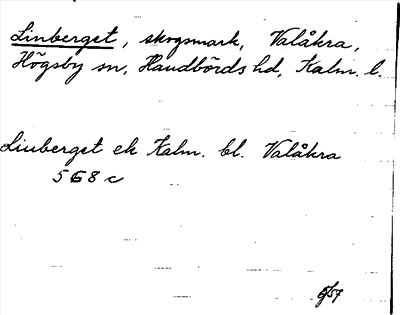 Linberget, skogsmark, Valåkra,
Högsby sn, Handbörds hd, Kalm. l.
Linberget ek Kalm. bl. Valåkra
568 c